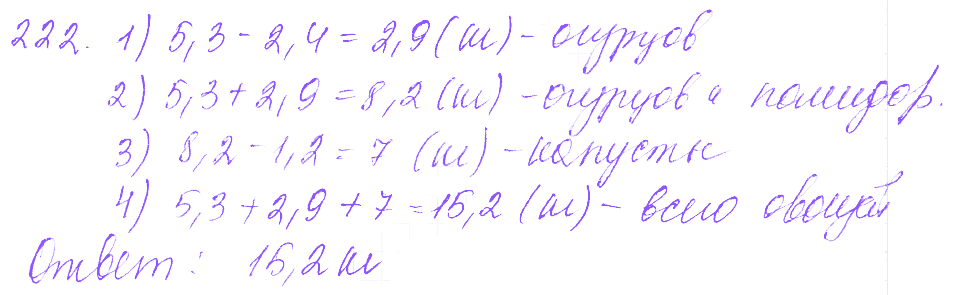 222. 1) 5,3 - 2,4 = 2,9 (т) - огурцов
2) 5,3 + 2,9 = 8,2 (т) - огурцов и помидор.
3) 8,2 - 1,2 = 7 (т) - капусты
4) 5,3 + 2,9 + 7 = 15,2 (т) - всего овощей
Ответ: 15,2 т